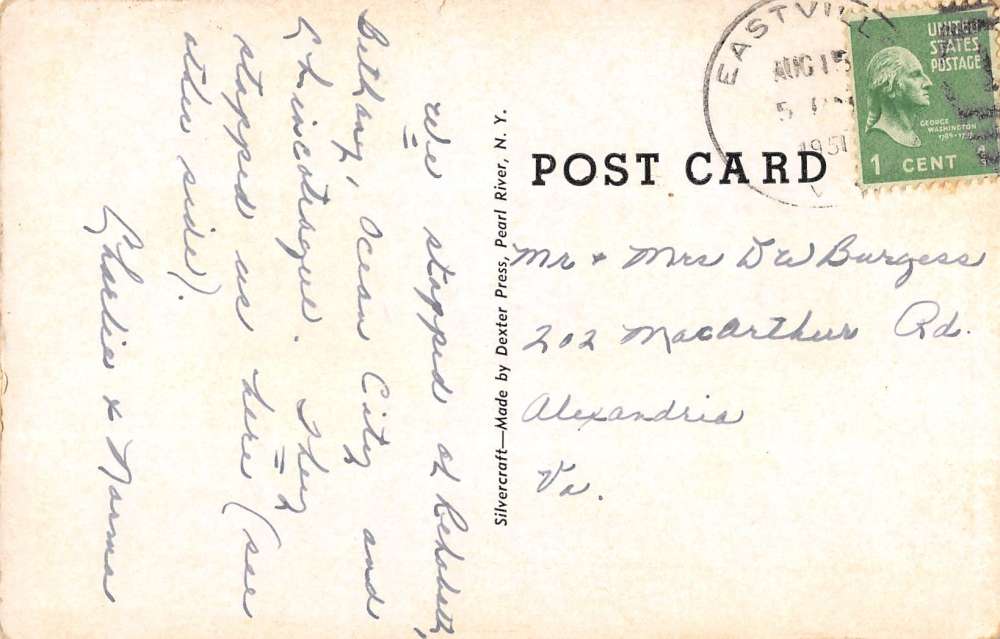 We stopped at Rehobeth,
Bethany, Ocean City and
Chincoteague. They
stopped us here (see
other side).
Charlie & Norma
Silvercraft—Made by Dexter Press, Pearl River, N. Y.
POST CARD
EASTVILLE
AUG 15
5
1951
UNITED
STATES
POSTAGE
GEORGE
WASHINGTON
1789-1797
1 CENT 1
Mr & Mrs D W Burgess
202 MacArthur Rd.
Alexandria
Va.